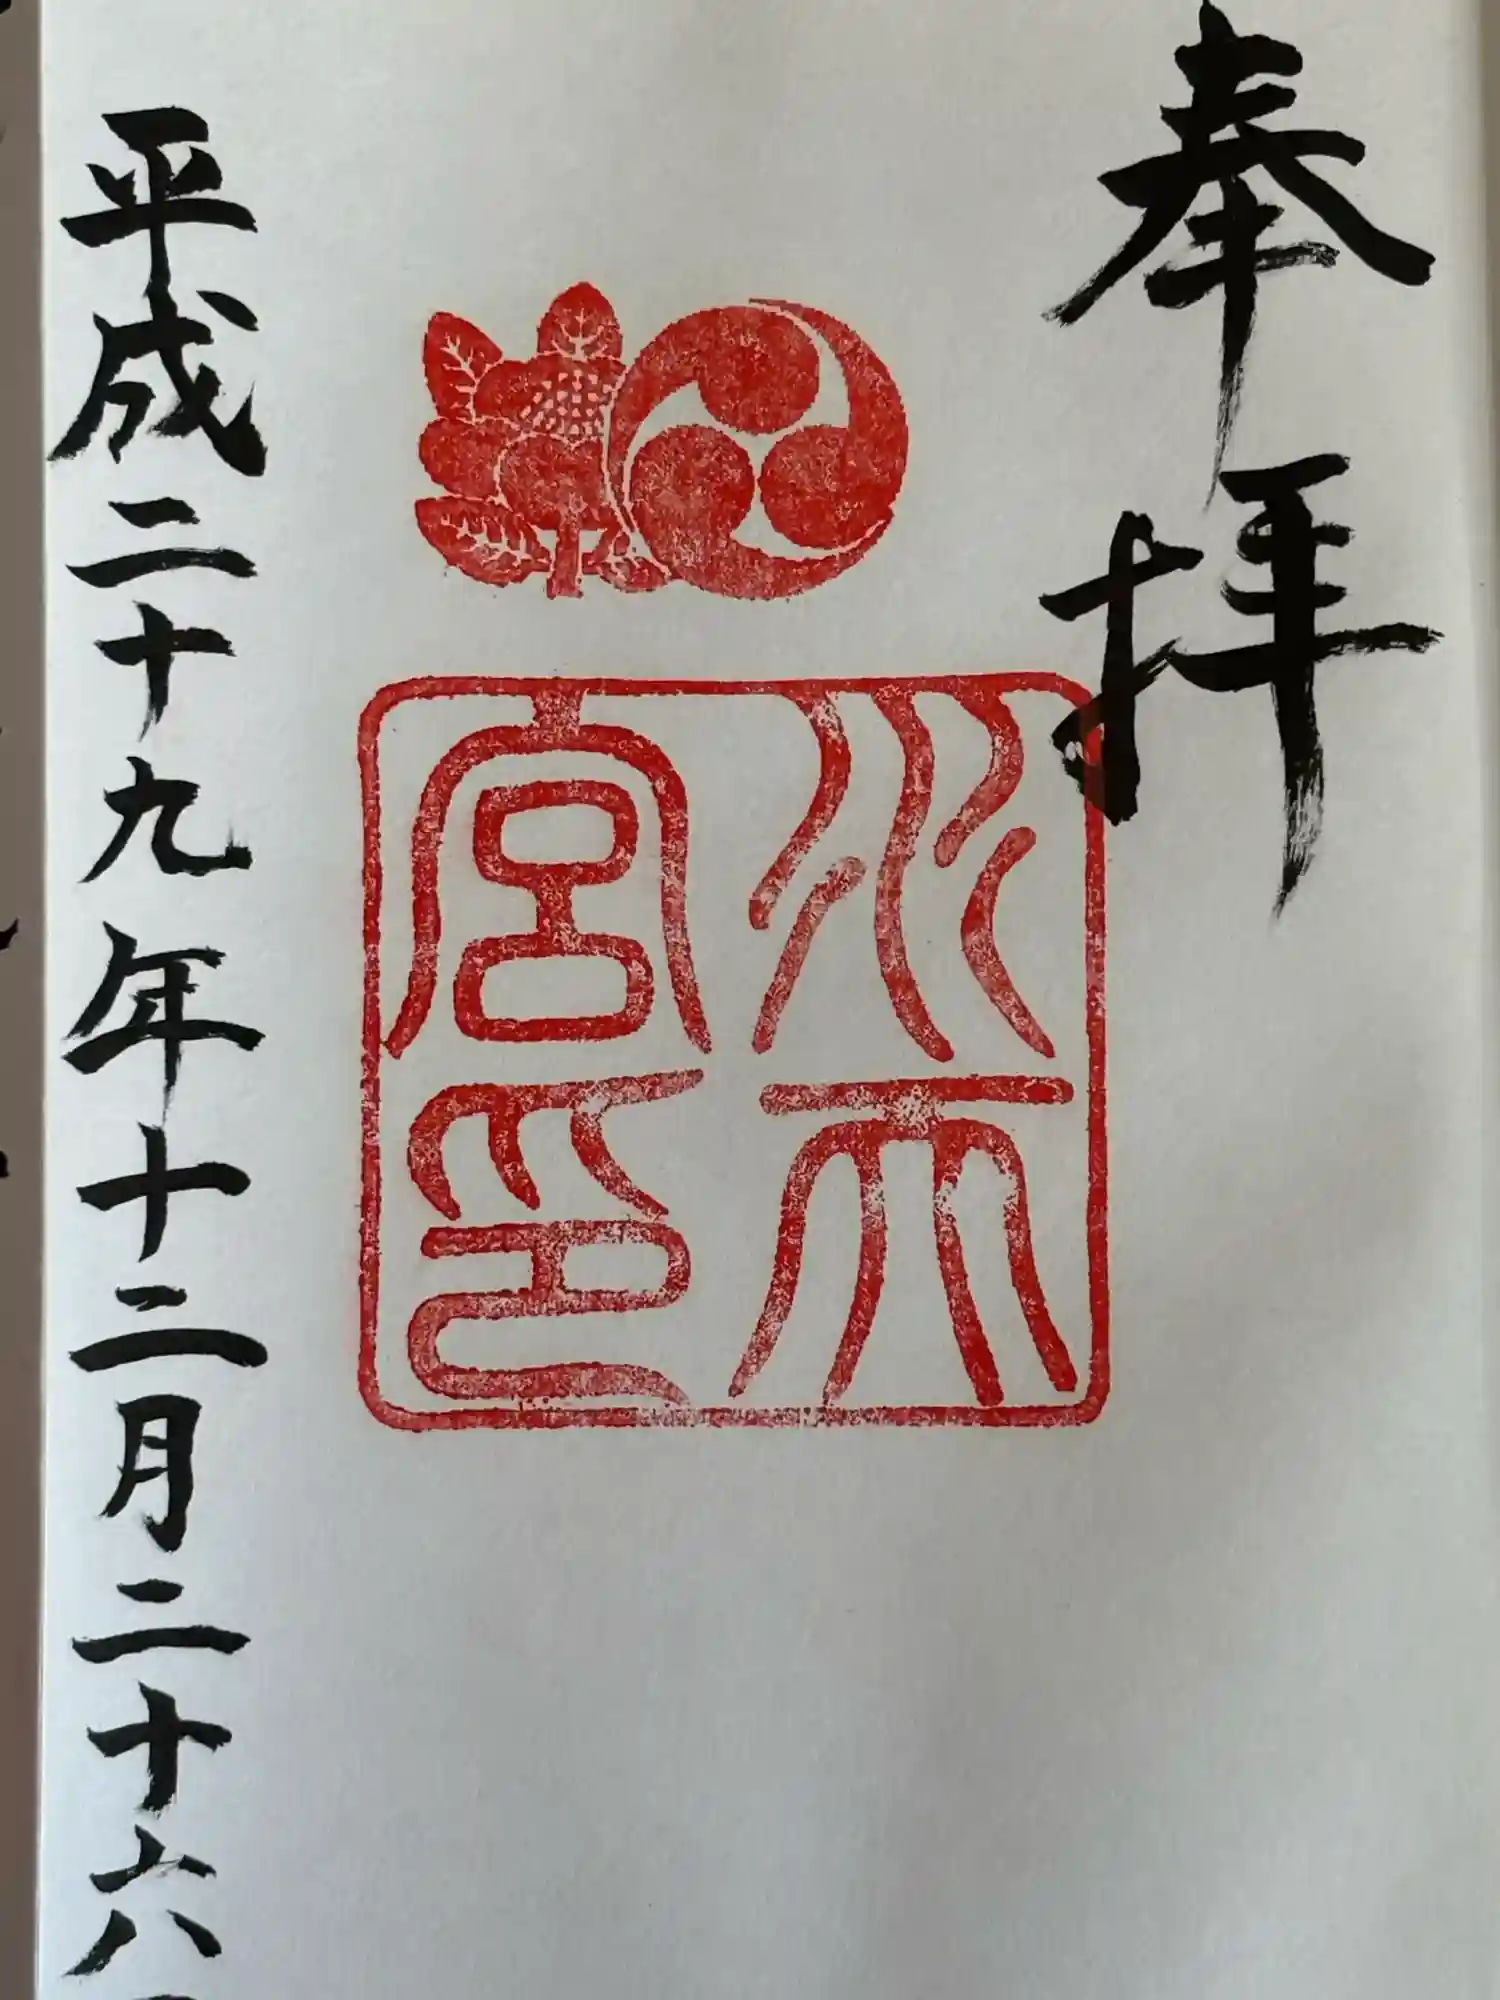 奉拝
水天
宮印
平成二十九年十二月二十六